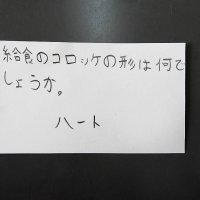 給食のコロッケの形は何で
しょうか。
ハート